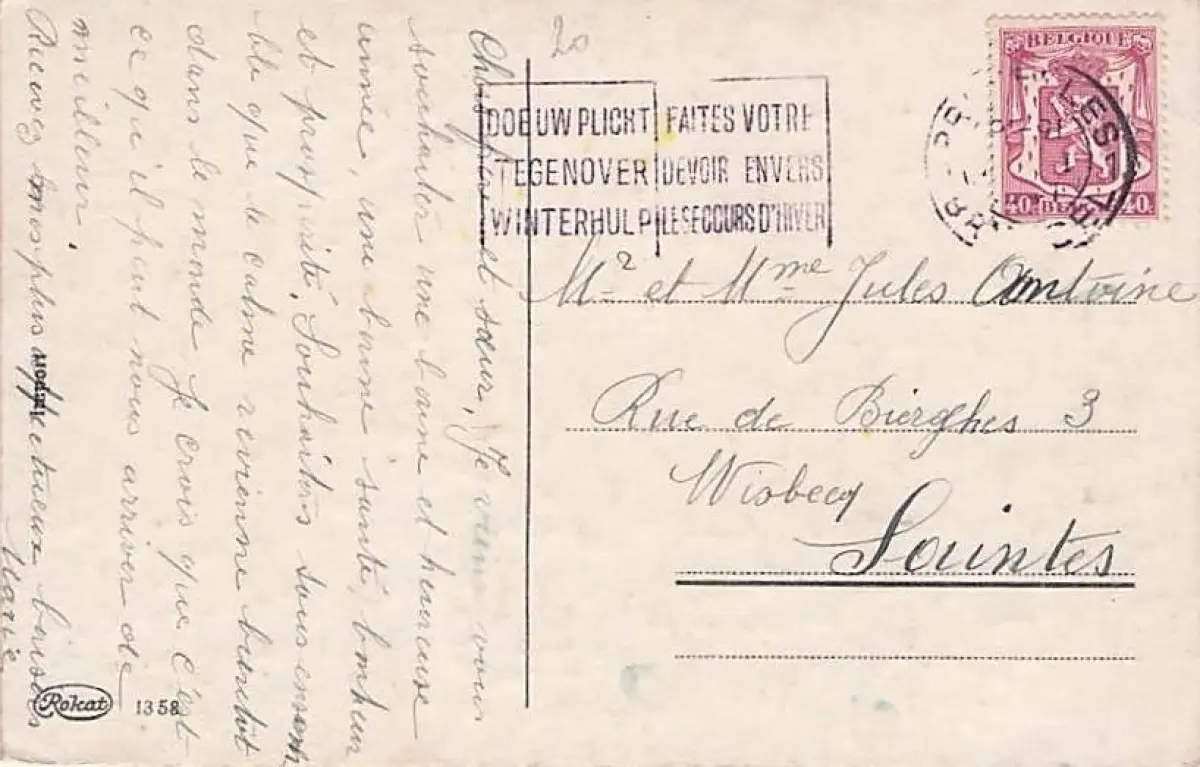 20
BELGIQUE
40
40
DOE UW PLICHT
TEGENOVER
WINTERHULP
FAITES VOTRE
DEVOIR ENVERS
LE SECOURS D'HIVER
Mr et Mme Jules Antoine
Rue de Bierghes 3
Wisbecq
Saintes
Chers frère et sœur, Je viens vous
souhaiter une bonne et heureuse
année, une bonne santé bonheur
et prospérité. Souhaitons tous ensem
ble que le calme revienne bientôt
dans le monde Je crois que c'est
ce qu'il peut nous arriver de
meilleur.
Recevez mes plus affectueux baisers
Marie
Rokat
1358